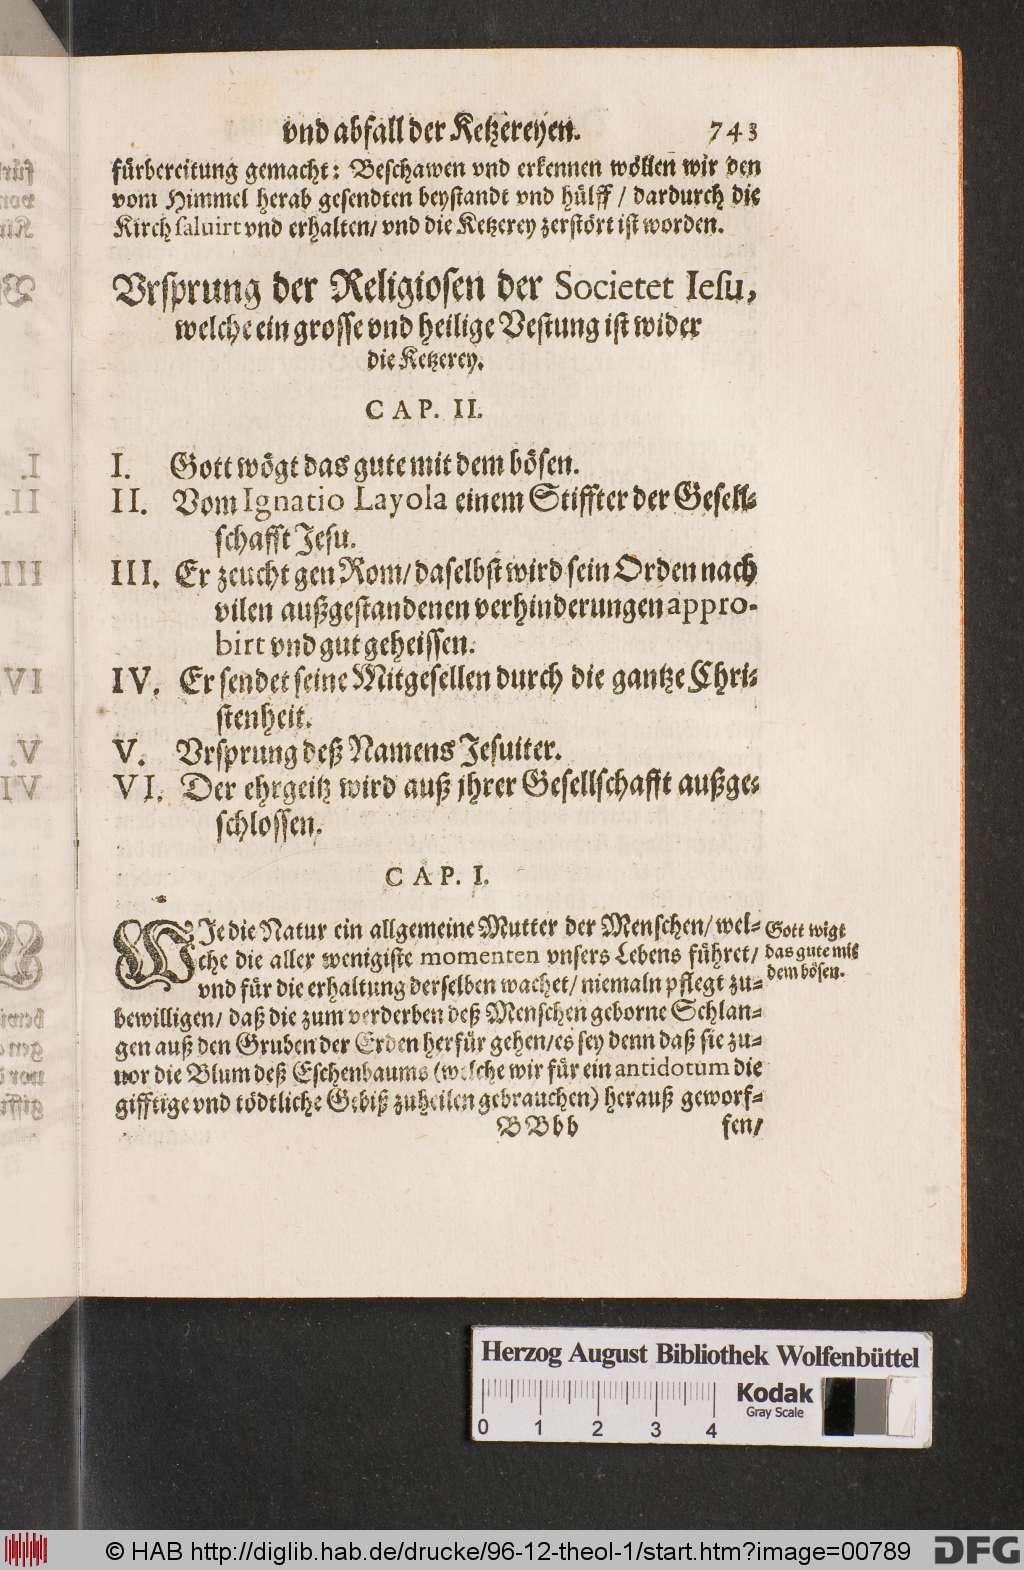 vnd abfall der Ketzereyen. 743
fürbereitung gemacht: Beschawen vnd erkennen wöllen wir den
vom Himmel herab gesendten beystandt vnd hülff / dardurch die
Kirch saluirt vnd erhalten / vnd die Ketzerey zerstört ist worden.
Vrsprung der Religiosen der Societet Iesu,
welche ein grosse vnd heilige Vestung ist wider
die Ketzerey.
CAP. II.
I. Gott wögt das gute mit dem bösen.
II. Vom Ignatio Layola einem Stiffter der Gesell-
schafft Jesu.
III. Er zeucht gen Rom / daselbst wird sein Orden nach
vilen außgestandenen verhinderungen appro-
birt vnd gut geheissen.
IV. Er sendet seine Mitgesellen durch die gantze Chri-
stenheit.
V. Vrsprung deß Namens Jesuiter.
VI. Der ehrgeitz wird auß jhrer Gesellschafft außge-
schlossen.
CAP. I.
WIe die Natur ein allgemeine Mutter der Menschen / wel-
che die aller wenigiste momenten vnsers Lebens führet /
vnd für die erhaltung derselben wachet / niemaln pflegt zu-
bewilligen / daß die zum verderben deß Menschen geborne Schlan-
gen auß den Gruben der Erden herfür gehen / es sey denn daß sie zu-
uor die Blum deß Eschenbaums (welche wir für ein antidotum die
gifftige vnd tödtliche Gebiß zuheilen gebrauchen) herauß geworf-
BBbb fen /
Gott wigt
das gute mit
dem bösen.
Herzog August Bibliothek Wolfenbüttel
Kodak
Gray Scale
0 1 2 3 4
© HAB http://diglib.hab.de/drucke/96-12-theol-1/start.htm?image=00789
DFG